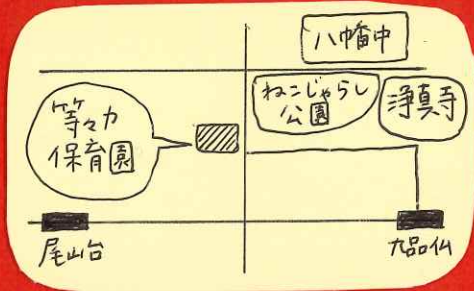 八幡中
ねこじゃらし
公園
浄真寺
等々力
保育園
尾山台
九品仏